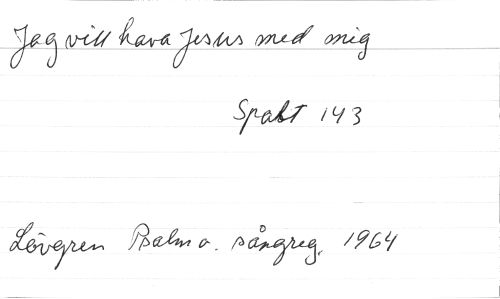 Jag vill hava Jesus med mig
Spalt 143
Lövgren Psalm o. sångreg. 1964